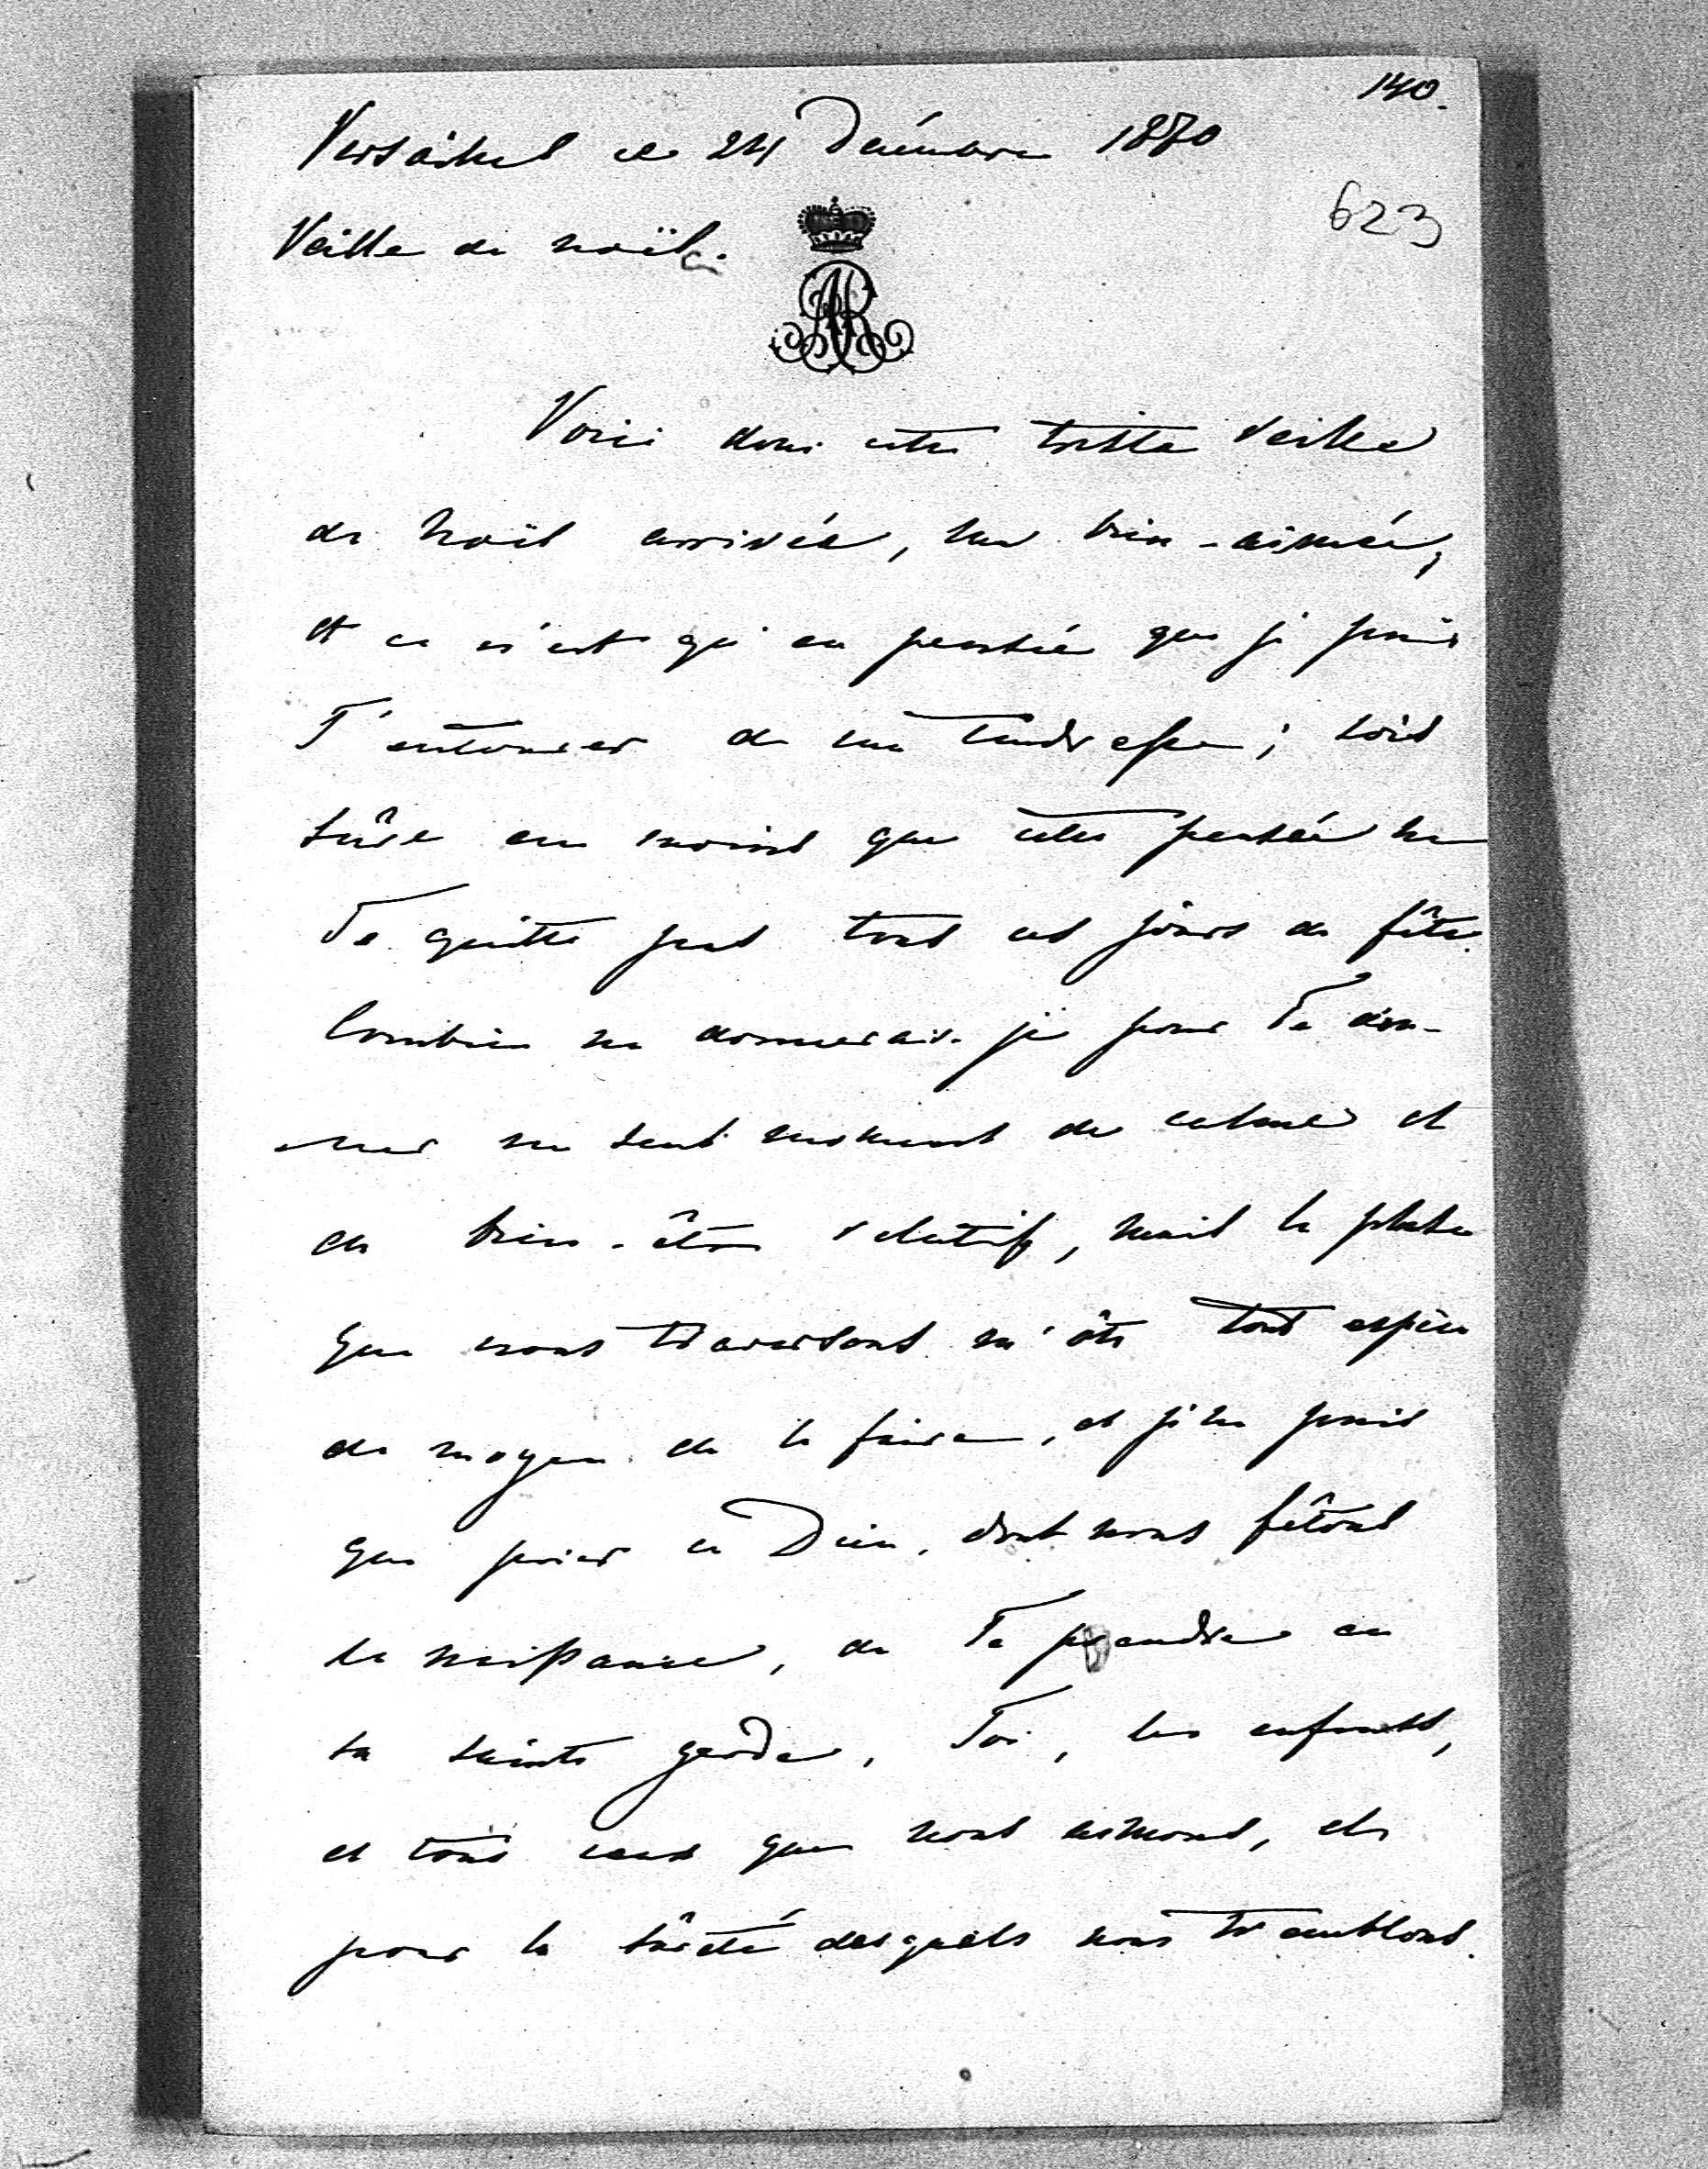 140.
Versailles ce 24 Décembre 1870
623
Veille de noël.
AR
Voici donc cette triste veille
de Noël arrivée, ma bien-aimée,
et ce n'est qu'en pensée que je puis
T'entourer de ma tendresse; sois
sûre au moins que cette pensée ne
Te quitte pas tous ces jours de fête.
Combien ne donnerais-je pour Te don-
ner un seul moment de calme et
de bien-être relatif, mais la phase
que nous traversons m'ôte tout espèce
de moyen de le faire, et je ne puis
que prier ce Dieu, dont nous fêtons
la naissance, de Te prendre en
sa sainte garde, Toi, les enfants,
et tous ceux que nous aimons, et
pour la sûreté desquels nous tremblons.